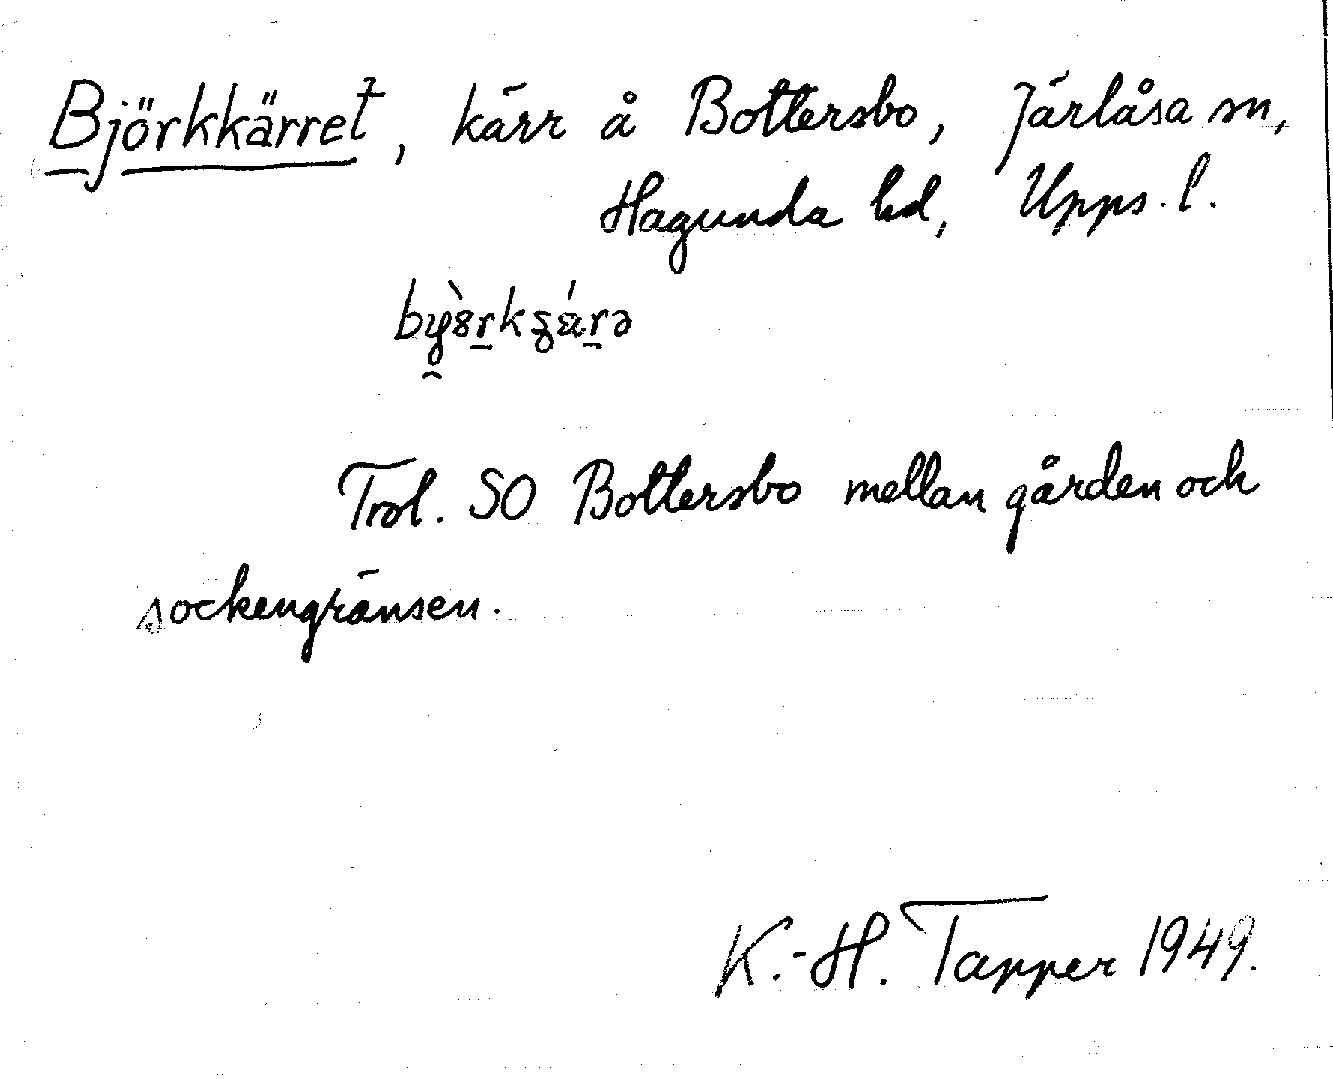 Björkkärret, kärr å Bottersbo, Järlåsa sn,
Hagunda hd, Upps. l.
Trol. SO Bottersbo mellan gården och
sockengränsen.
K.-H. Tapper 1949.